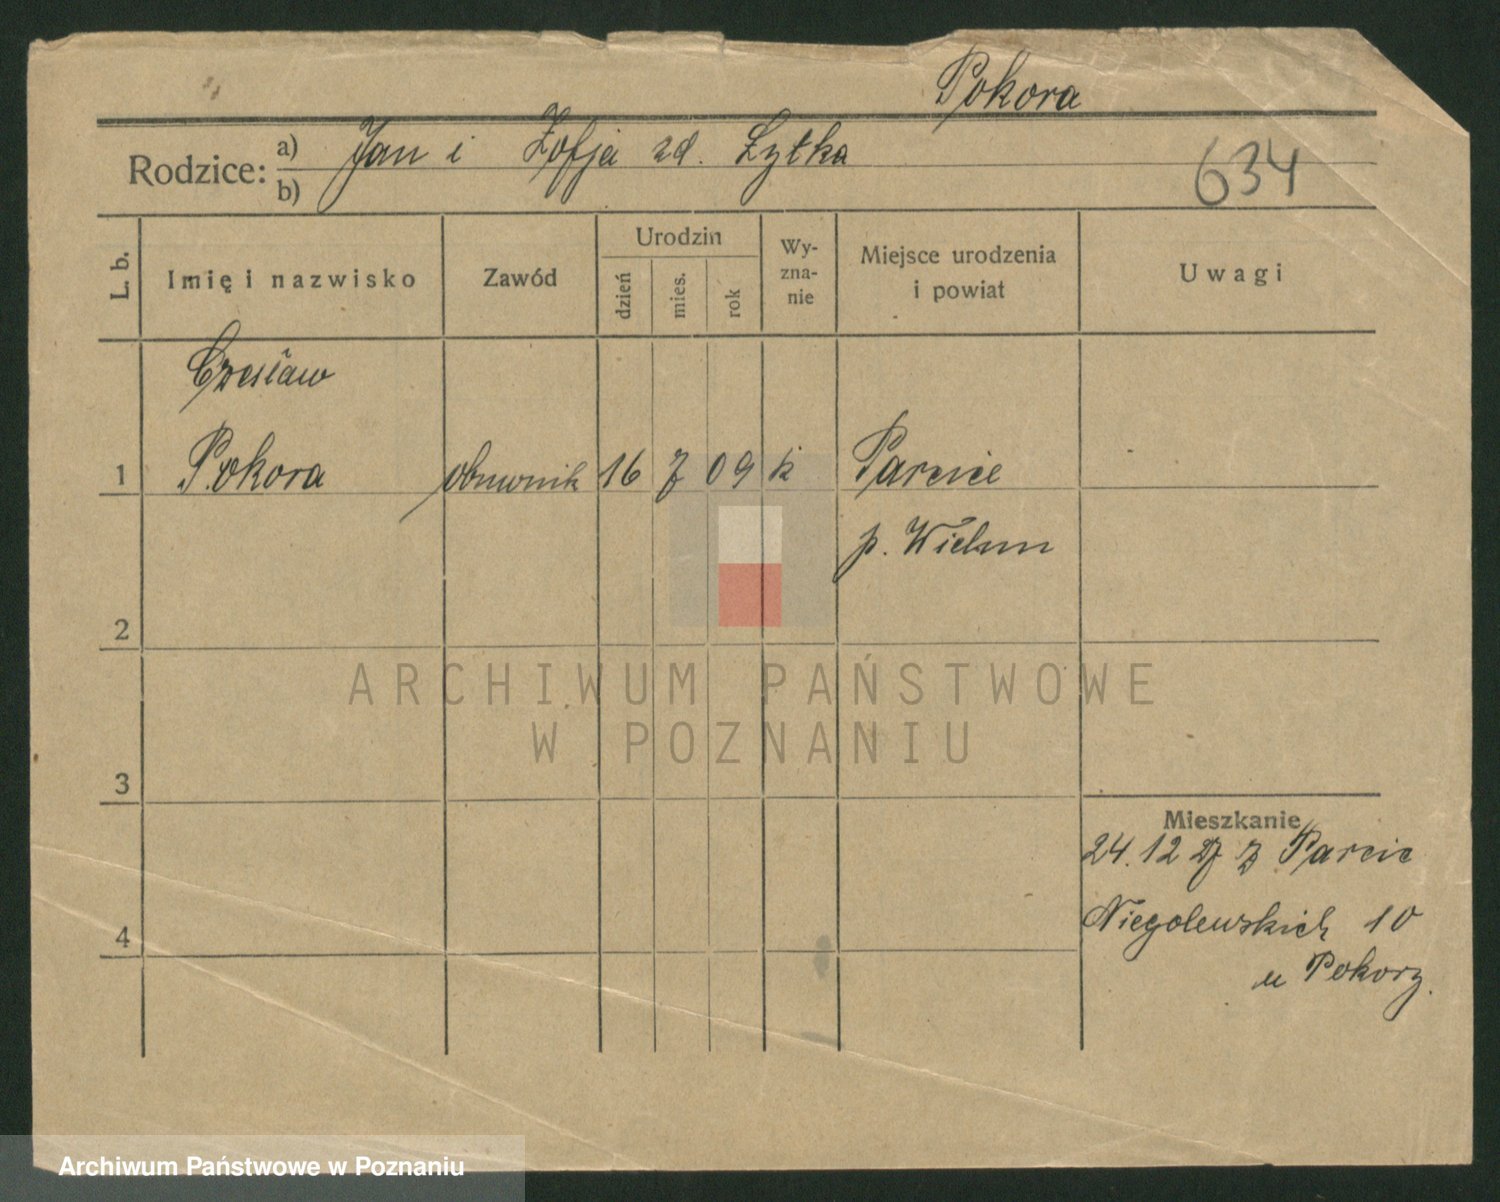 Pokora
Rodzice: a) Jan i Zofja zd. Łytka
b)
634
L. b.
Imię i nazwisko
Zawód
Urodzin
dzień
mies.
rok
Wy-
zna-
nie
Miejsce urodzenia
i powiat
Uwagi
Czesław
1 Pokora obuwnik 16 7 09 k Parcice
p. Wielun
2
ARCHIWUM PAŃSTWOWE
W POZNANIU
3
Mieszkanie
24.12 27 z Parcic
4
Niegolewskich 10
u Pokory.
Archiwum Państwowe w Poznaniu